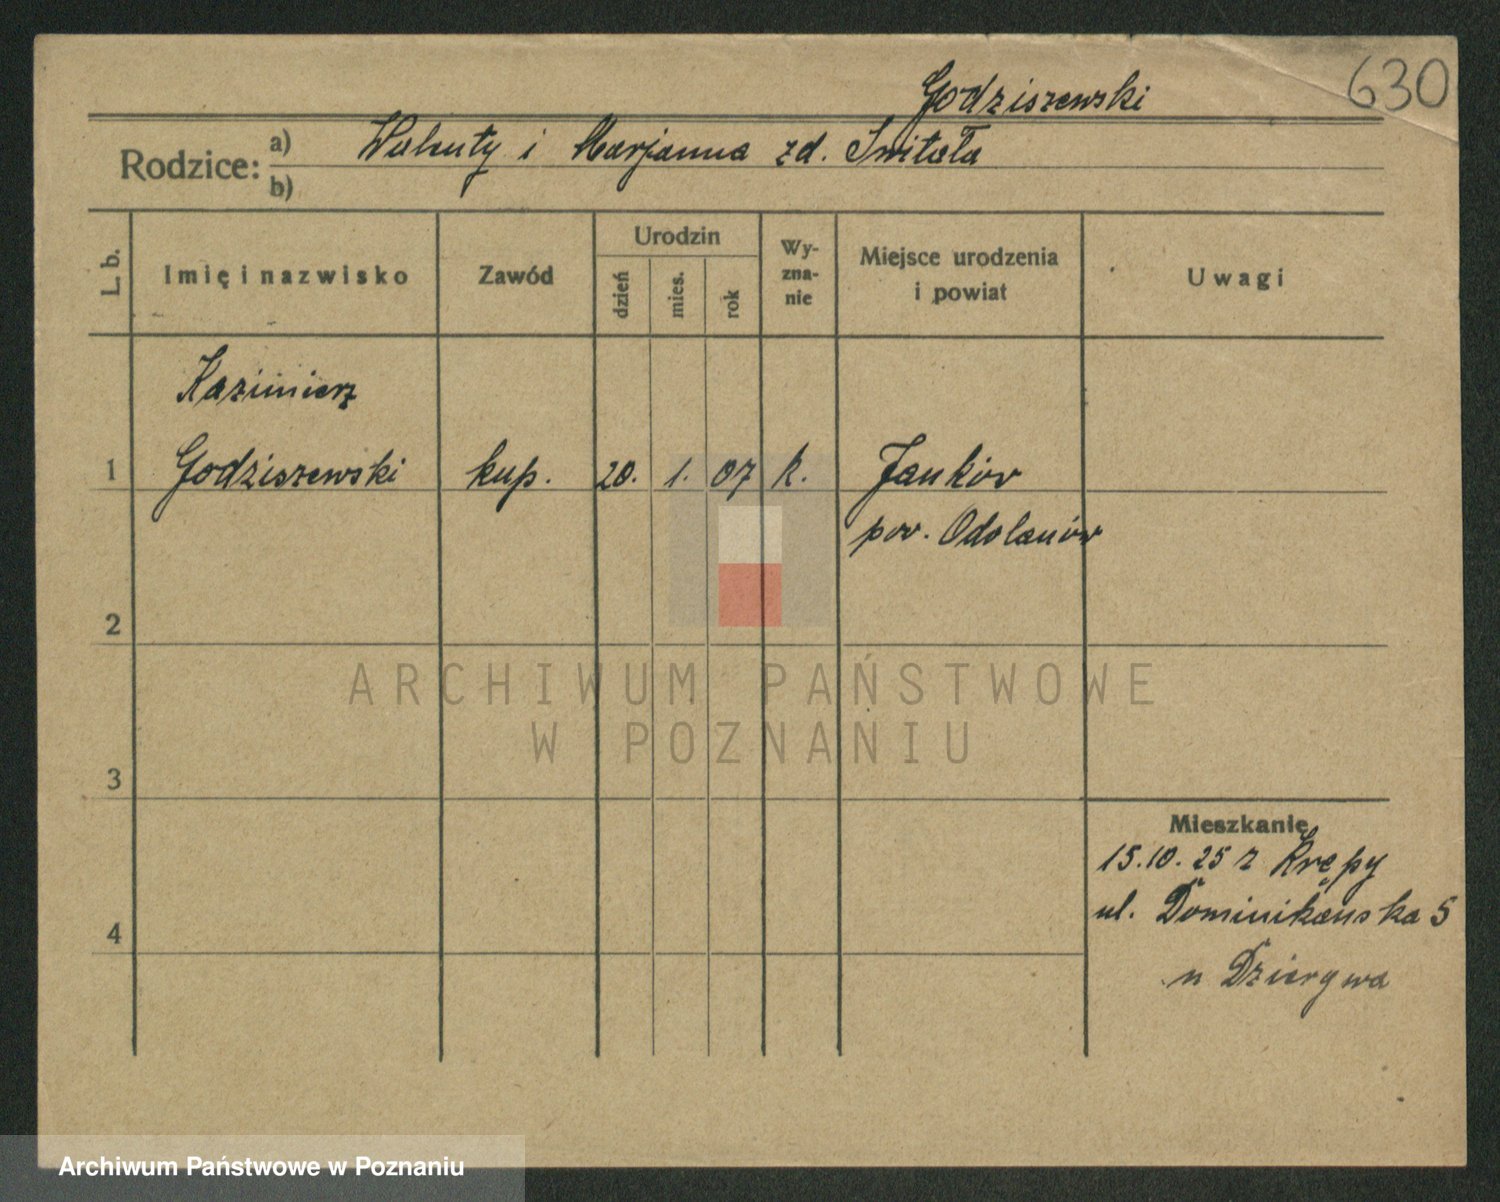 630
Godziszewski
Rodzice:
a) Walenty i Marjanna zd. Switała
b)
L. b.
Imię i nazwisko
Zawód
Urodzin
dzień
mies.
rok
Wy-
zna-
nie
Miejsce urodzenia
i powiat
Uwagi
Kazimierz
1 Godziszewski kup. 20. 1. 07 k. Janków
pow. Odolanów
2
ARCHIWUM PAŃSTWOWE
W POZNANIU
3
Mieszkanie
15.10.25 z Krępy
ul. Dominikańska 5
4
u Dziergwa
Archiwum Państwowe w Poznaniu